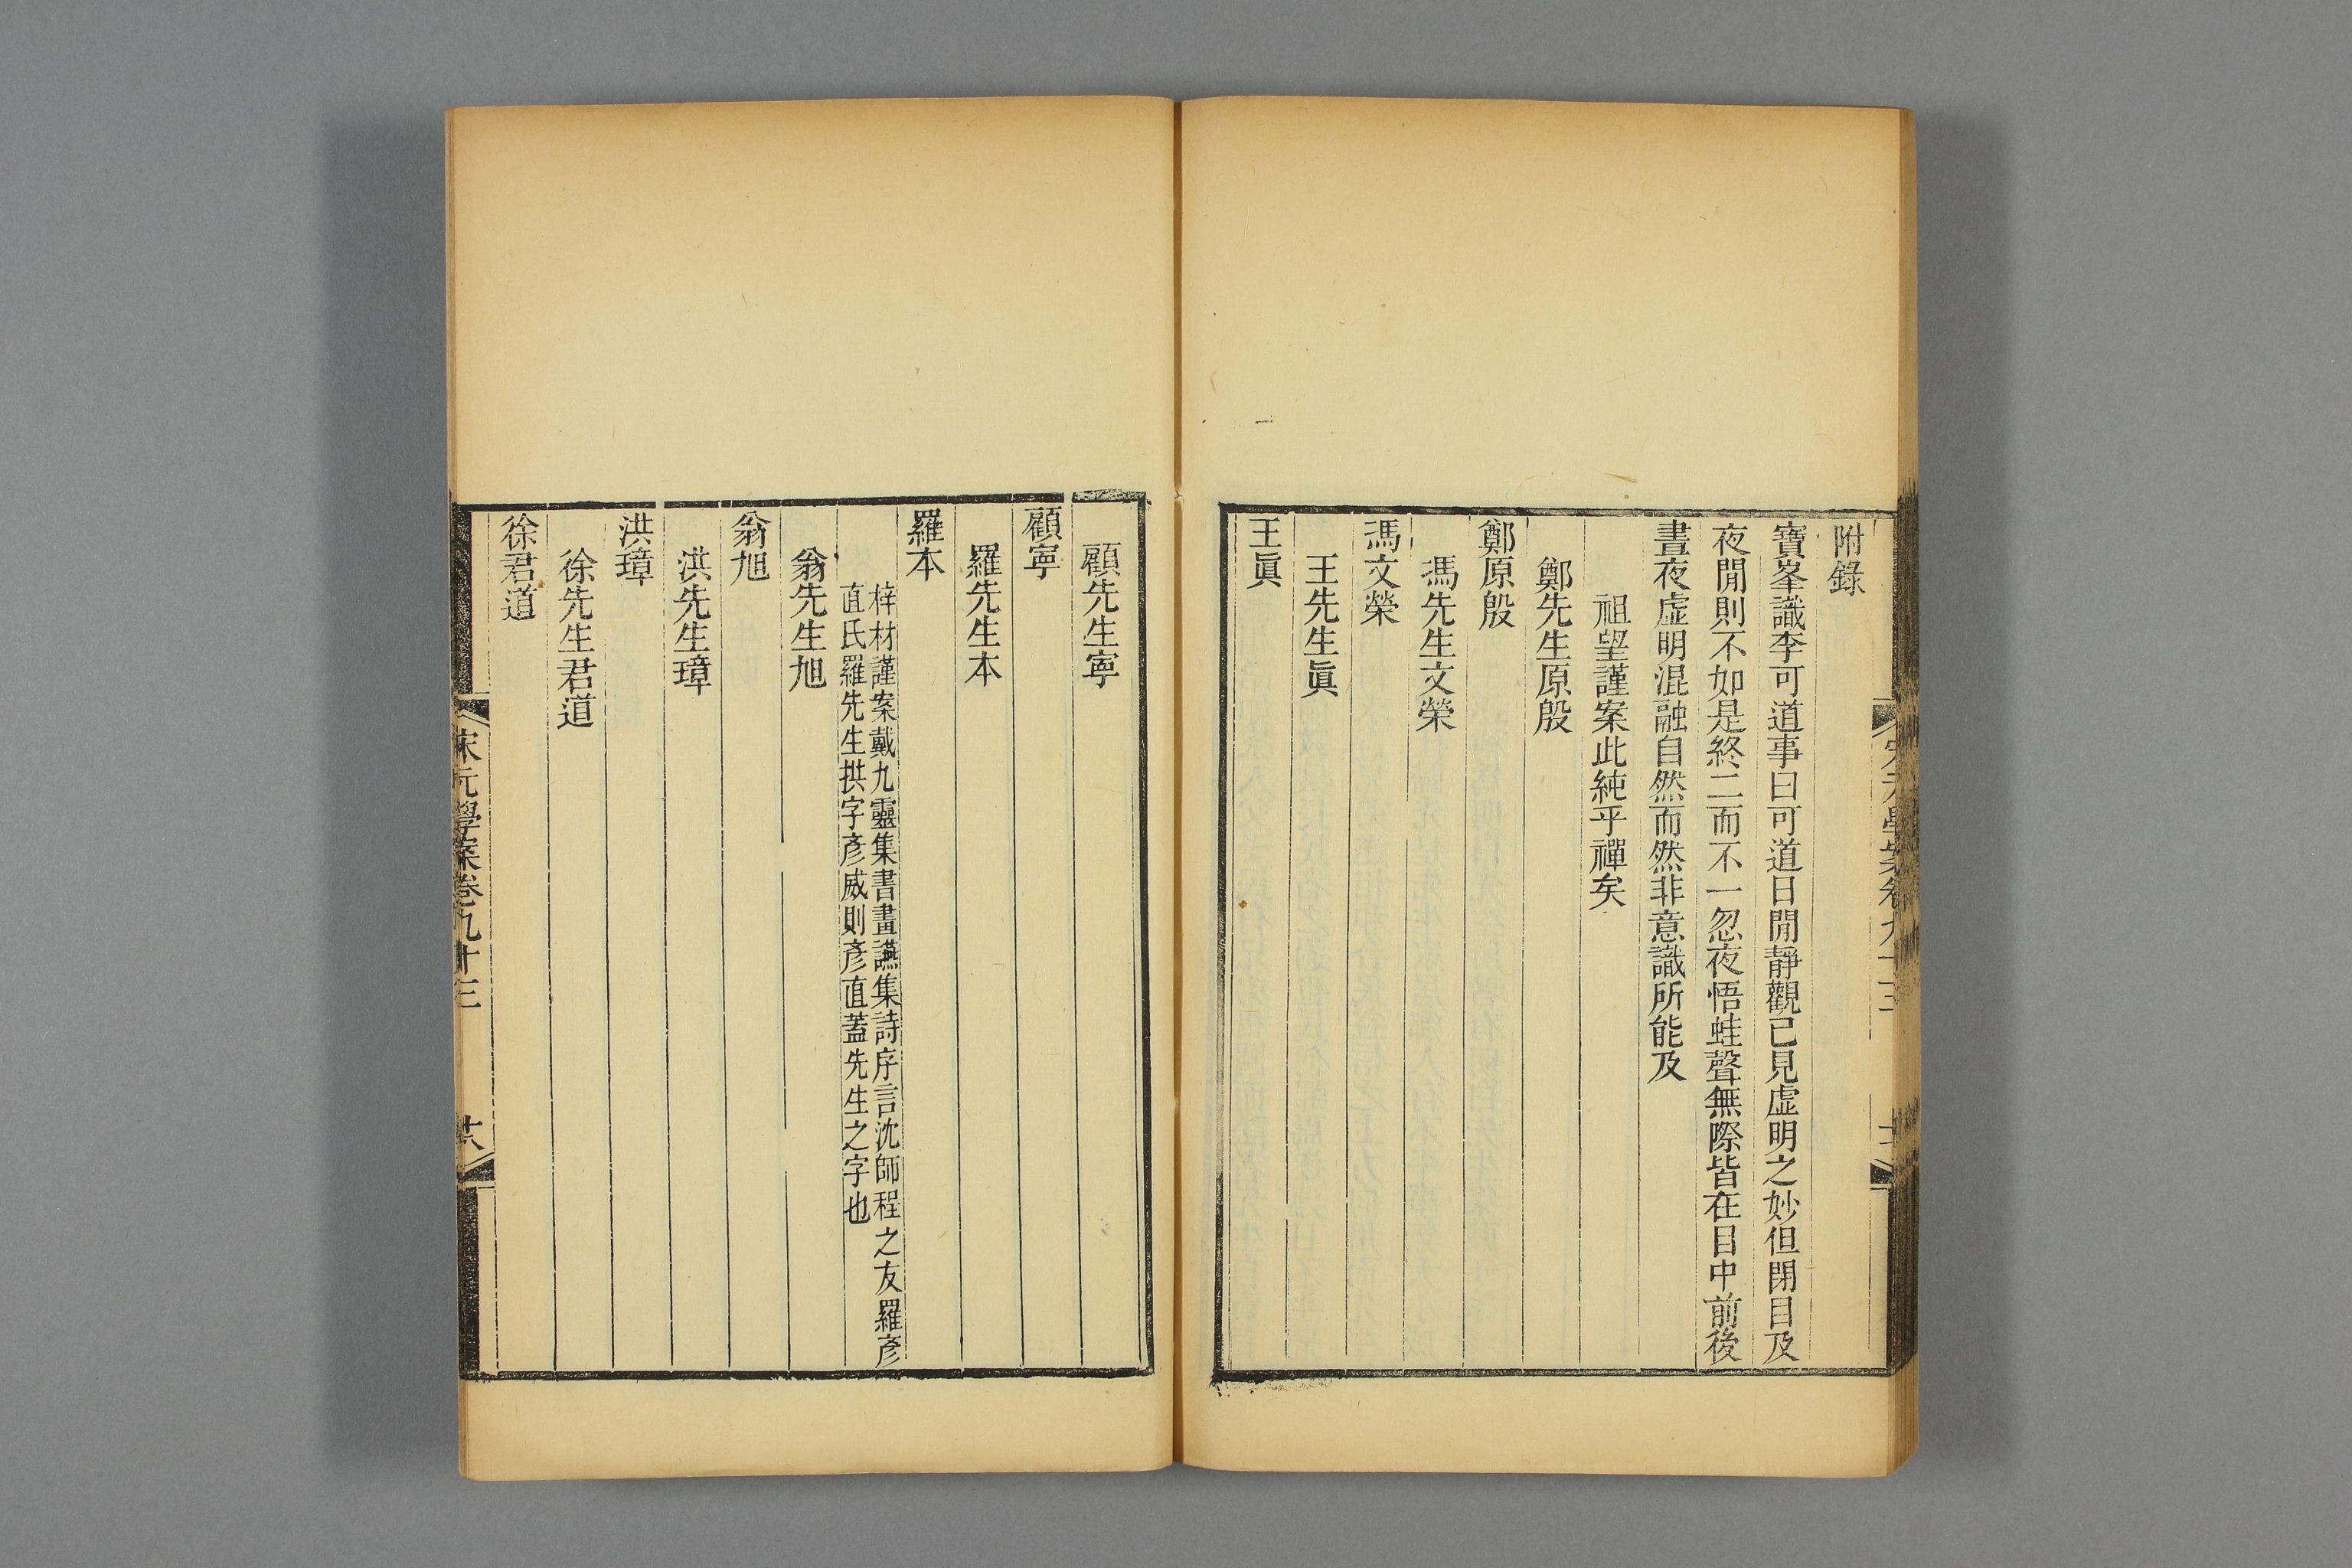 附錄
寶峯識李可道事曰可道日閒靜觀已見虛明之妙但閉目及
夜閒則不如是終二而不一忽夜悟蛙聲無際皆在目中前後
晝夜虛明混融自然而然非意識所能及
祖望謹案此純乎禪矣
鄭先生原殷
鄭原殷
馮先生文榮
馮文榮
王先生眞
王眞
顧先生寧
顧寧
羅先生本
羅本
梓材謹案戴九靈集書畫讌集詩序言沈師程之友羅彥
直氏羅先生拱字彥威則彥直蓋先生之字也
翁先生旭
翁旭
洪先生璋
洪璋
徐先生君道
徐君道
宋元學案卷九十三